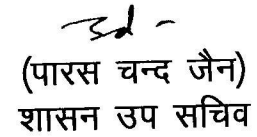 Sd-
(पारस चन्द जैन)
शासन उप सचिव